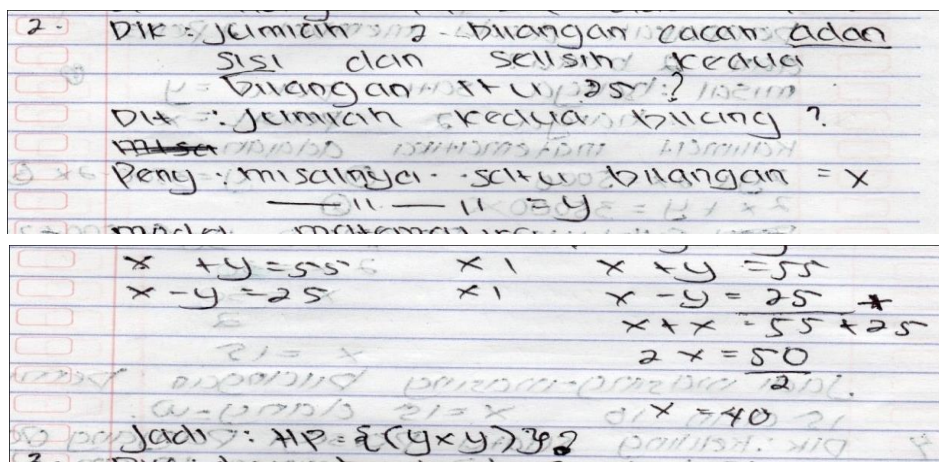 2. Dik : jumlah 2 bilangan cacah adan
SISI dan selisih kedua
bilangan itu 25 ?
Dit : Jumlah kedua bilang ?
Peny : misalnya satu bilangan = x
— 11 — 11 = y
model matematika
x + y = 55 x 1 x + y = 55
x - y = 25 x 1 x - y = 25 +
x + x = 55 + 25
2x = 50
2
x = 40
Jadi : HP = {(y x y)}?